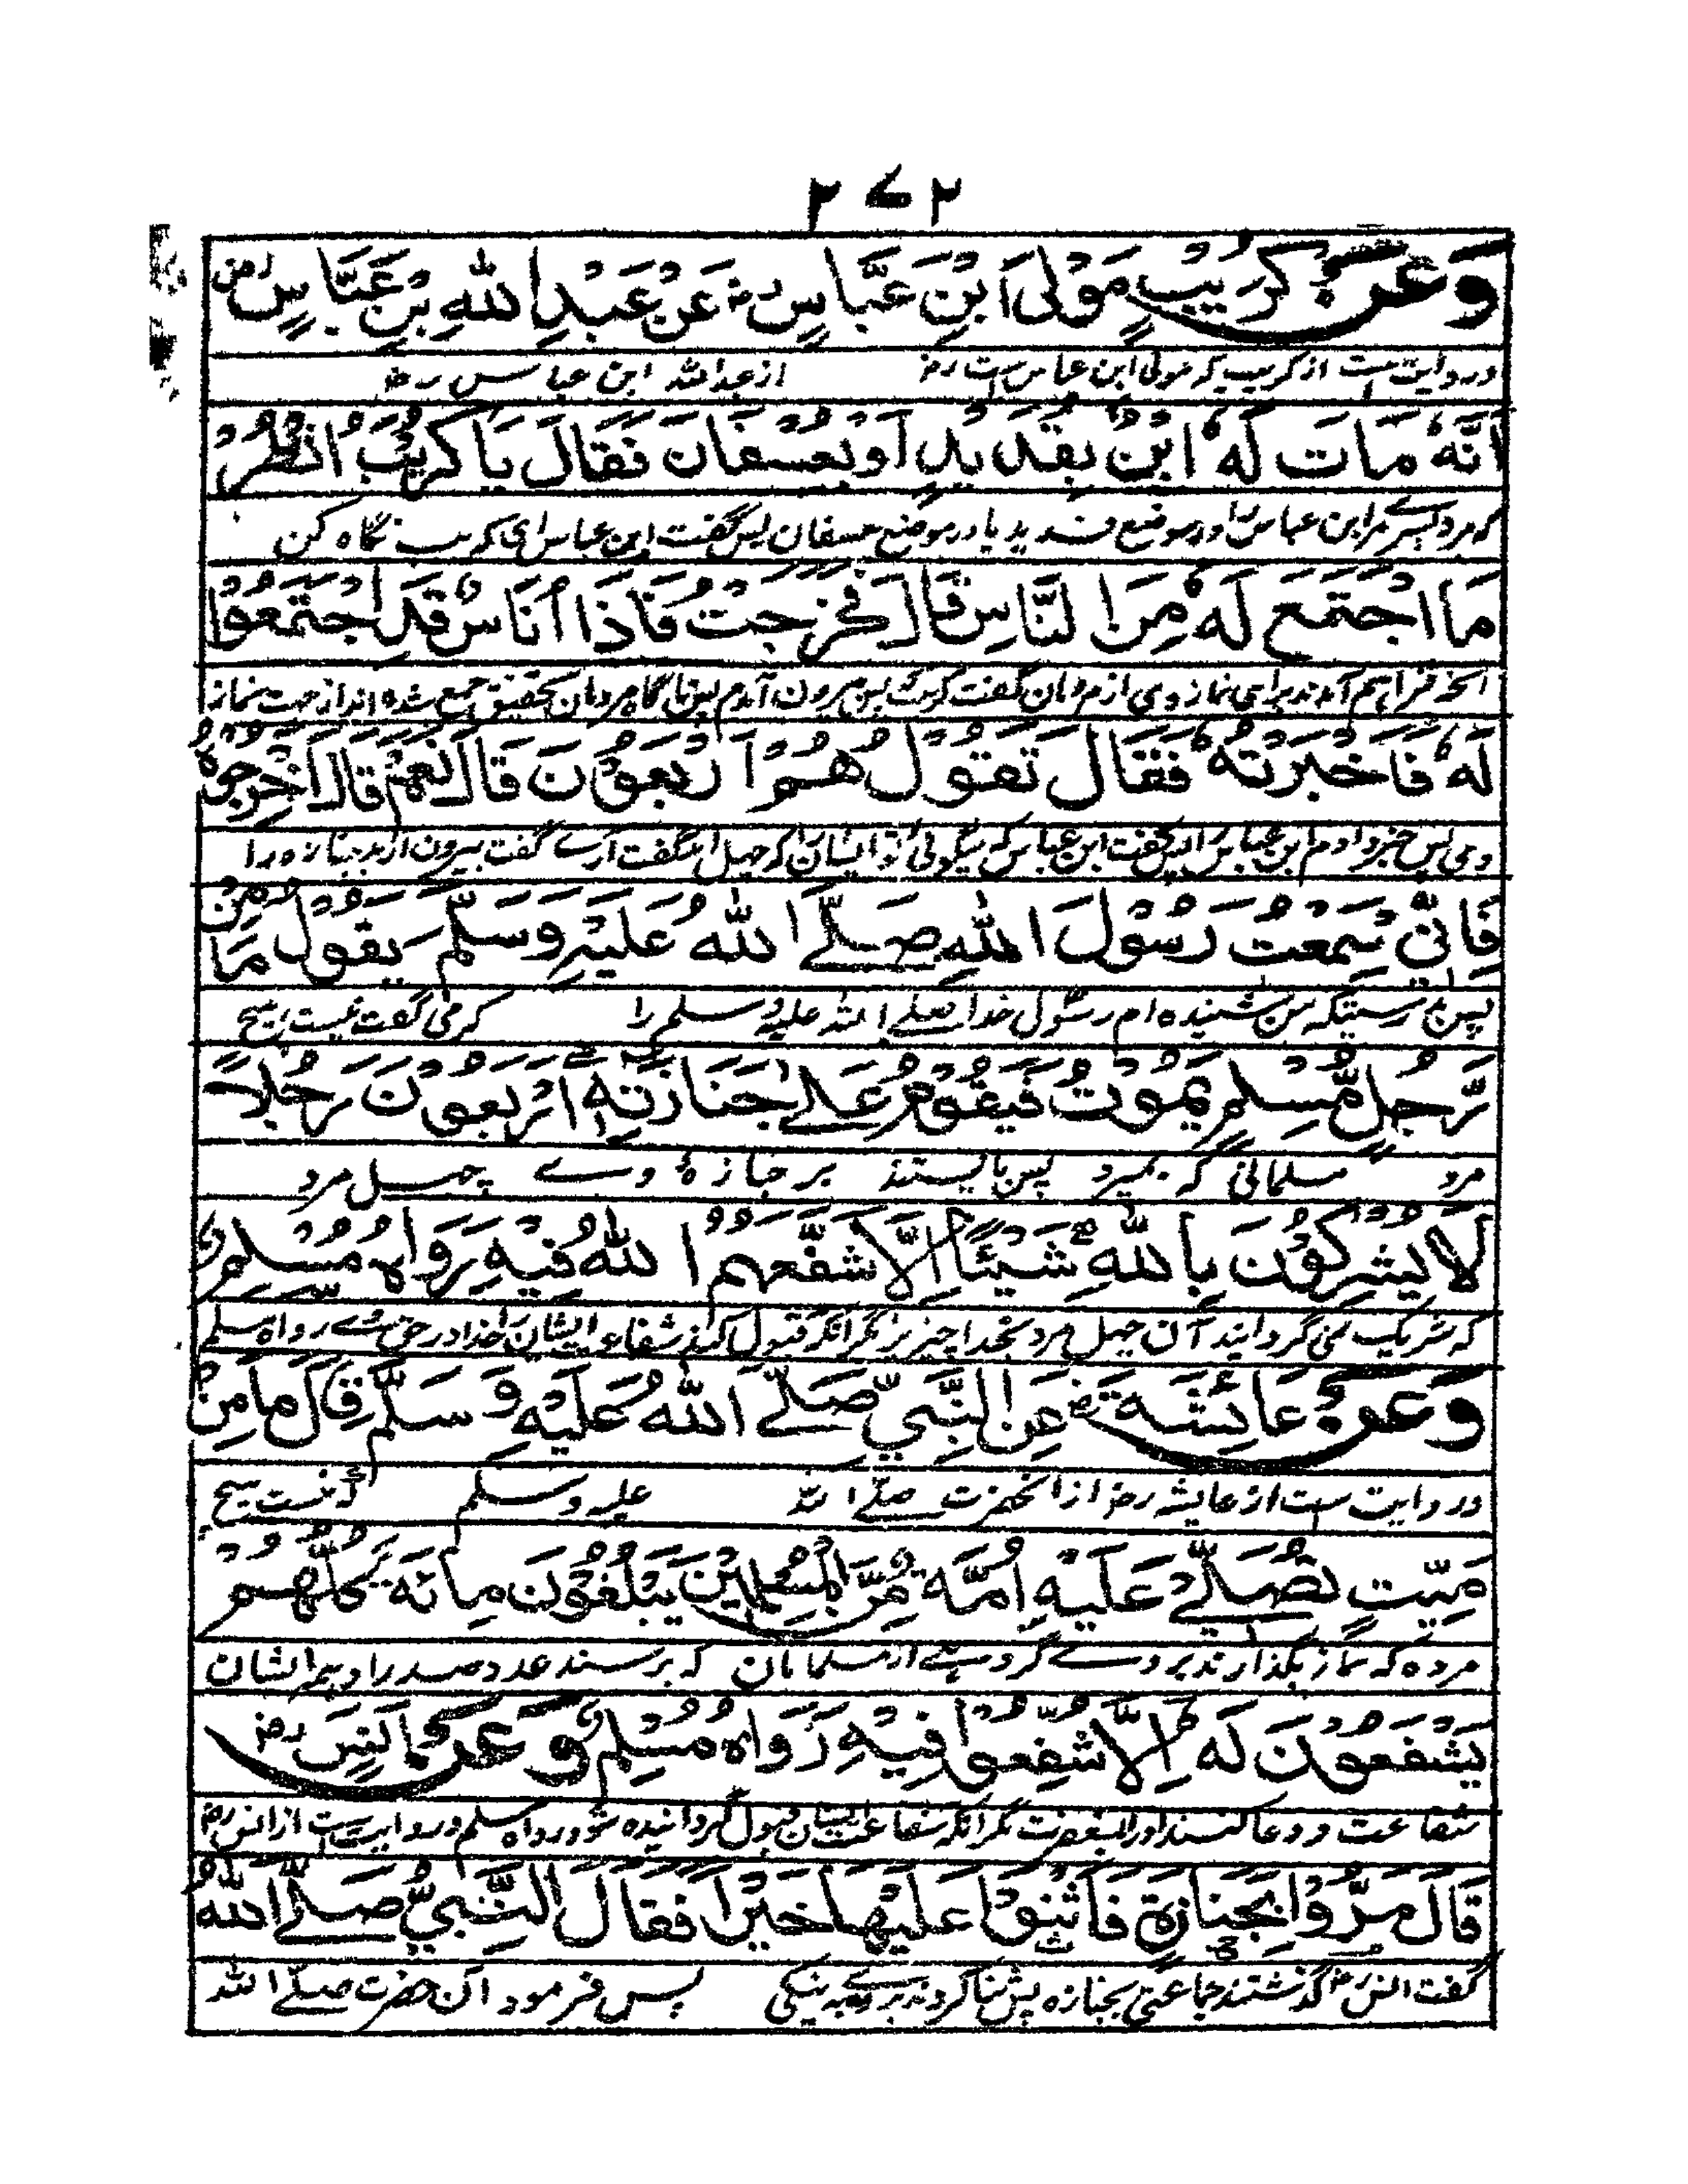 ۲۷۲
وَعَنْ كُرَيْبٍ مَوْلَى ابْنِ عَبَّاسٍ رض عَنْ عَبْدِ اللّٰهِ بْنِ عَبَّاسٍ رض
و روایت است از کریب که مولی ابن عباس است رض از عبدالله ابن عباس رض
اَنَّهٗ مَاتَ لَهٗ ابْنٌ بِقُدَيْدٍ اَوْ بِعُسْفَانَ فَقَالَ يَا كُرَيْبُ انْظُرْ
که مرد پسرے مر ابن عباس را در موضع قدید یا در موضع عسفان پس گفت ابن عباس ای کریب نگاه کن
مَا اجْتَمَعَ لَهٗ مِنَ النَّاسِ قَالَ فَخَرَجْتُ فَاِذَا اُنَاسٌ قَدِ اجْتَمَعُوْا
انچه فراهم آمدند برای نماز وی از مردمان گفت کریب پس بیرون آمدم پس ناگاه مردمان بتحقیق جمع شده اند از جهت نماز
لَهٗ فَاَخْبَرْتُهٗ فَقَالَ تَقُوْلُ هُمْ اَرْبَعُوْنَ قَالَ نَعَمْ قَالَ اَخْرِجُوْهُ
وی پس خبر دادم ابن عباس را پس گفت ابن عباس که میگوئی تو ایشان را که چهل اند گفت آرے گفت بیرون آرید جنازه را
فَاِنِّيْ سَمِعْتُ رَسُوْلَ اللّٰهِ صَلَّے اللّٰهُ عَلَيْهِ وَسَلَّمَ يَقُوْلُ مَا مِنْ
پس بدرستیکه من شنیده ام رسول خدا صلے الله علیه وسلم را که می گفت نیست هیچ
رَّجُلٍ مُّسْلِمٍ يَمُوْتُ فَيَقُوْمُ عَلٰے جَنَازَتِهٖ اَرْبَعُوْنَ رَجُلًا
مرد مسلمانی که بمیرد پس بایستند بر جنازهٔ وے چهل مرد
لَا يُشْرِكُوْنَ بِاللّٰهِ شَيْئًا اِلَّا شَفَّعَهُمُ اللّٰهُ فِيْهِ رَوَاهُ مُسْلِمٌ
که شریک نمی گردانید آن چهل مرد بخدا چیزیرا مگر انکه قبول کند شفاعت ایشان را خدا در حق وے رواه مسلم
وَعَنْ عَائِشَةَ رض عَنِ النَّبِيِّ صَلَّے اللّٰهُ عَلَيْهِ وَسَلَّمَ قَالَ مَا مِنْ
و روایت ست از عایشه رض از انحضرت صلے الله علیه وسلم که نیست هیچ
مَيِّتٍ تُصَلِّيْ عَلَيْهِ اُمَّةٌ مِّنَ الْمُسْلِمِيْنَ يَبْلُغُوْنَ مِائَةً كُلُّهُمْ
مرده که نماز بگذارند بر وے گروهے از مسلمانان که برسند عدد صد را و همه ایشان
يَشْفَعُوْنَ لَهٗ اِلَّا شُفِّعُوْا فِيْهِ رَوَاهُ مُسْلِمٌ وَعَنْ اَنَسٍ رض
شفاعت و دعا کنند او را بمغفرت مگر انکه شفاعت ایشان قبول گردانیده شود رواه مسلم و روایت است از انس رض
قَالَ مَرُّوْا بِجَنَازَةٍ فَاَثْنَوْا عَلَيْهَا خَيْرًا فَقَالَ النَّبِيُّ صَلَّے اللّٰهُ
گفت انس رض گذشتند جماعتی بجنازه پس ثنا کردند بر وے به نیکی پس فرمود آن حضرت صلے الله